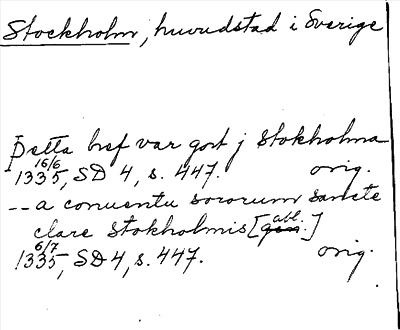 Stockholm, huvudstad i Sverige
Þetta bref var gort j Stokholma
16/6
1335, SD 4, s. 447. orig.
-- a conuentu sororum sancte
clare Stokholmis [gen. abl.]
6/7
1335, SD 4, s. 447. orig.